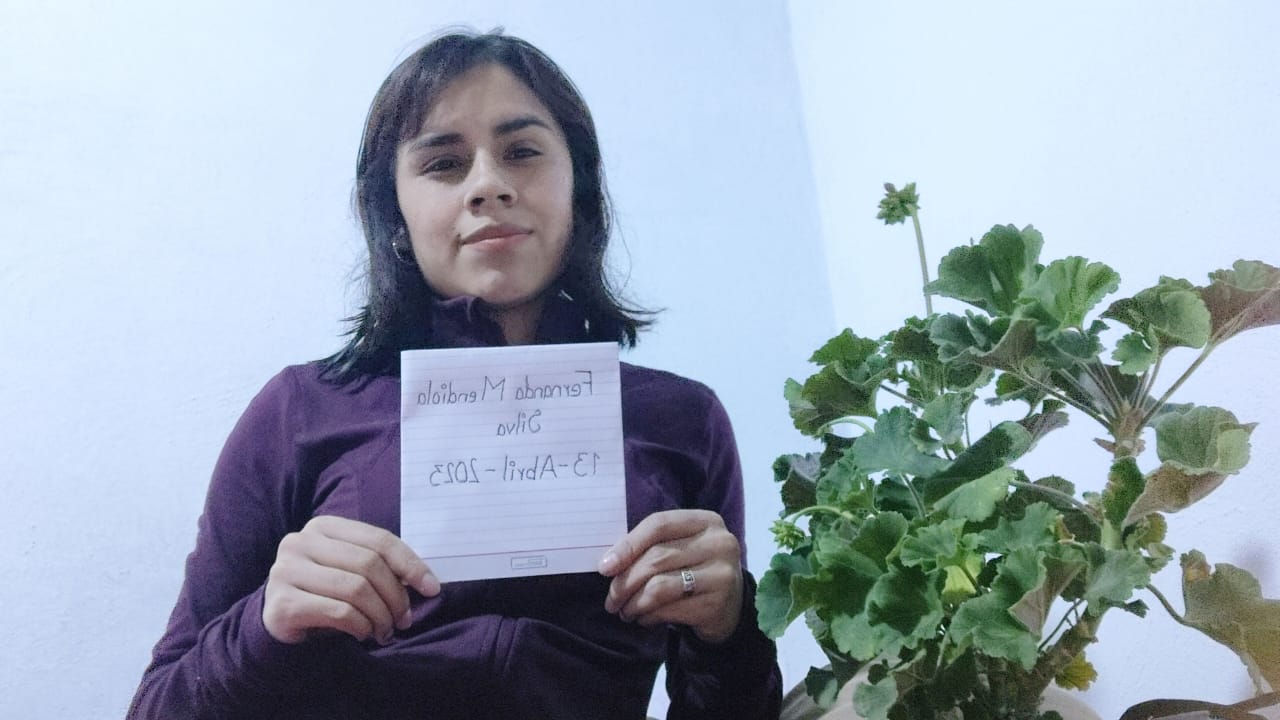 Fernanda Mendiola
Silva
13-Abril-2023